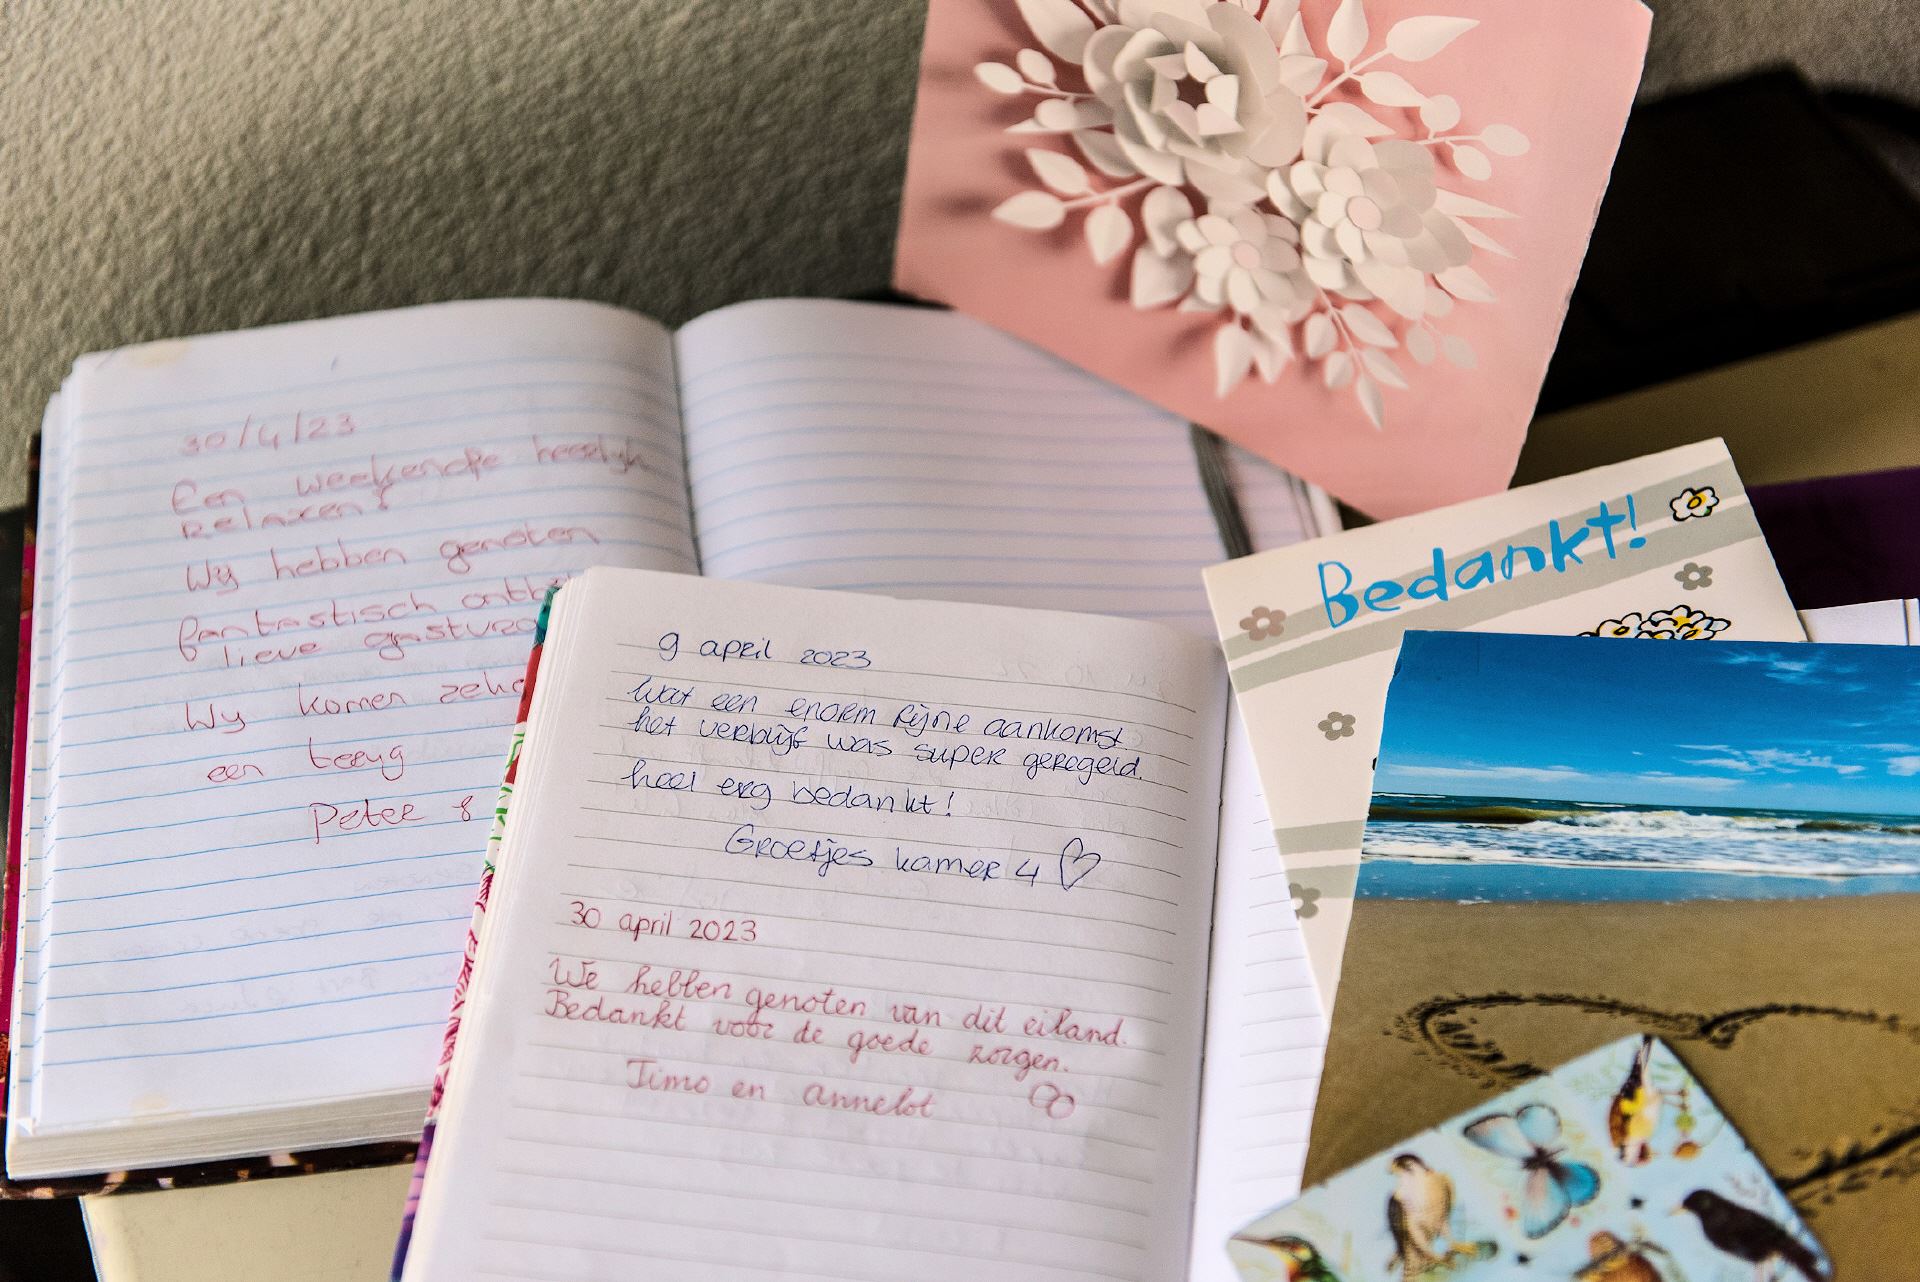 30/4/23
Een weekendje heerlijk
Relaxen!
Wij hebben genoten
fantastisch ontb
lieve gastvro
Wij komen zeke
een terug
Peter &
9 april 2023
Wat een enorm fijne aankomst
het verblijf was super geregeld.
heel erg bedankt!
Groetjes kamer 4 ♡
30 april 2023
We hebben genoten van dit eiland.
Bedankt voor de goede zorgen.
Timo en Annelot
Bedankt!